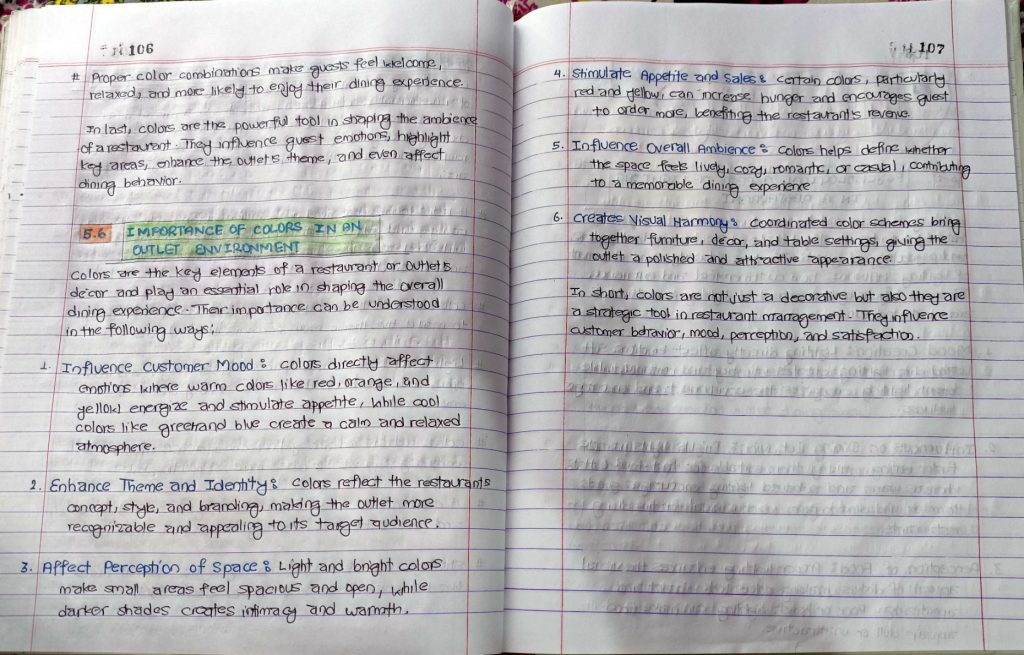 106
# Proper color combinations make guests feel welcome,
relaxed, and more likely to enjoy their dining experience.
In last, colors are the powerful tool in shaping the ambience
of a restaurant. They influence guest emotions, highlight
key areas, enhance the outlets theme, and even affect
dining behavior.
5.6 IMPORTANCE OF COLORS IN AN
OUTLET ENVIRONMENT
Colors are the key elements of a restaurant or outlets
decor and play an essential role in shaping the overall
dining experience. Their importance can be understood
in the following ways;
1. Influence Customer Mood : Colors directly affect
emotions where warm colors like red, orange, and
yellow energize and stimulate appetite, while cool
colors like green and blue create a calm and relaxed
atmosphere.
2. Enhance Theme and Identity : Colors reflect the restaurants
concept, style, and branding, making the outlet more
recognizable and appealing to its target audience.
3. Affect Perception of Space : Light and bright colors
make small areas feel spacious and open, while
darker shades creates intimacy and warmth.
107
4. Stimulate Appetite and Sales : Certain colors, particularly
red and yellow, can increase hunger and encourages guest
to order more, benefiting the restaurant's revenue.
5. Influence Overall Ambience : Colors helps define whether
the space feels lively, cozy, romantic, or casual, contributing
to a memorable dining experience
6. Creates Visual Harmony : Coordinated color schemes bring
together furniture, decor, and table settings, giving the
outlet a polished and attractive appearance
In short, colors are not just a decorative but also they are
a strategic tool in restaurant management. They influence
customer behavior, mood, perception, and satisfaction.